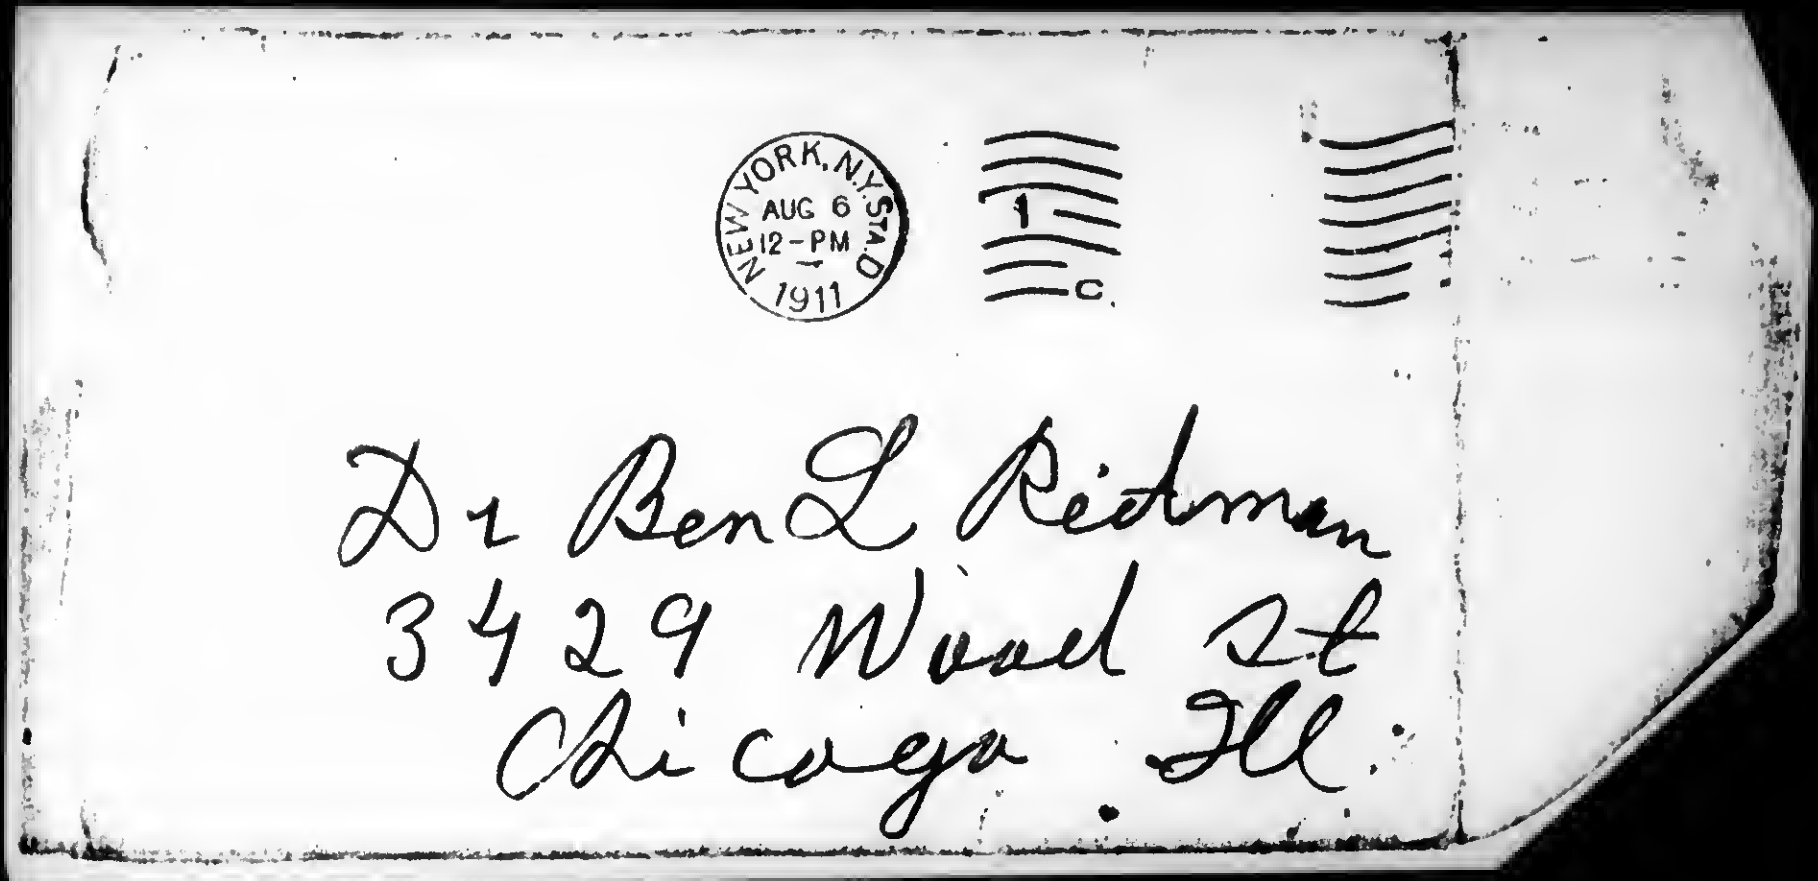 NEW YORK, N.Y. STA. D
AUG 6
12-PM
1911
1
C.
Dr Ben L Reitman
3429 Wood St
Chicago Ill.